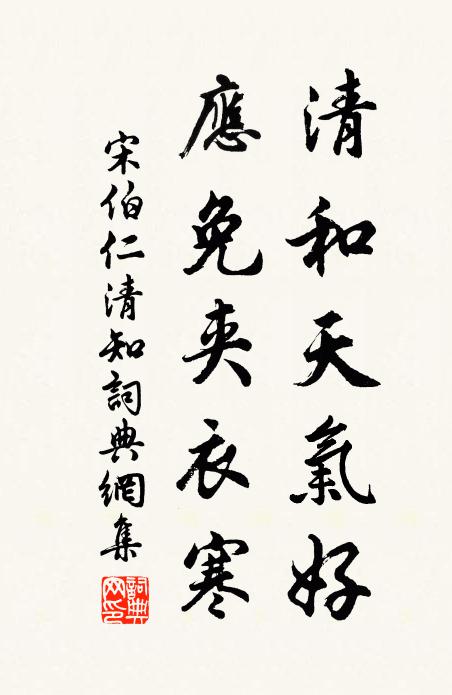 清和天氣好
應免夹衣寒
宋伯仁清知詞典網集
詞典网印